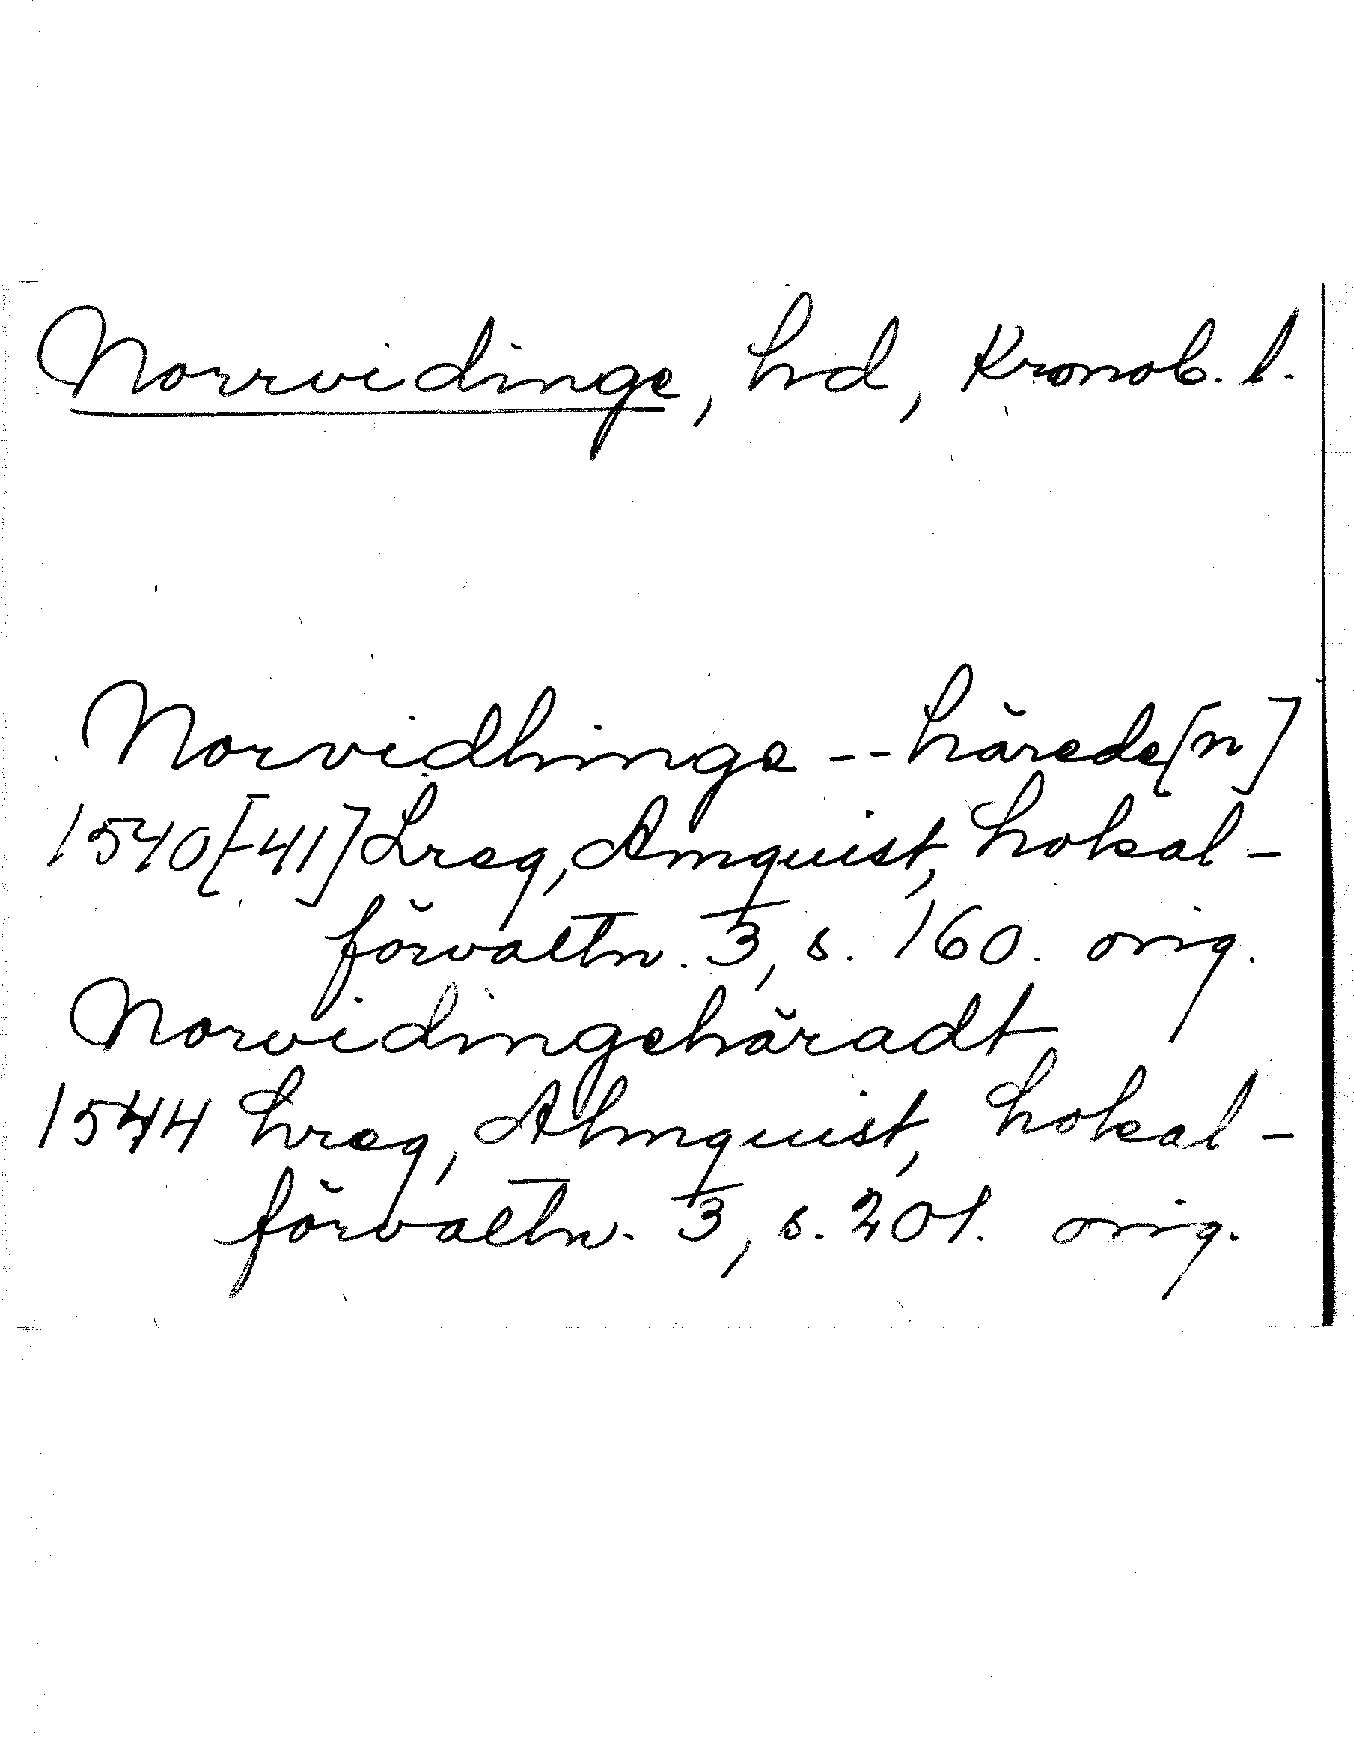 Norrvidinge, hd, Kronob. l.
Norvidhinge -- härede[n]
1540[-41] Lreg, Amquist, Lokal-
förvaltn. 3, s. 160. orig.
Norvidingehäradt
1544 Lreg, Almquist, Lokal-
förvaltn. 3, s. 201. orig.